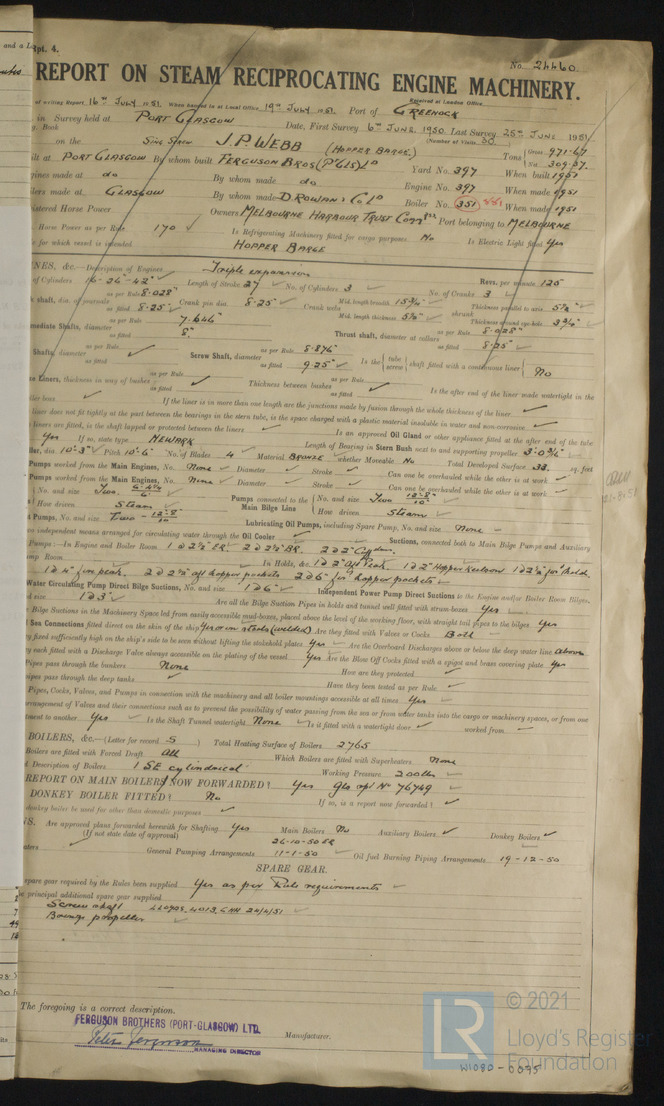 Rpt. 4.
No. 24460
REPORT ON STEAM RECIPROCATING ENGINE MACHINERY.
Received at London Office
of writing Report 16th JULY 1951 When handed in at Local Office 19th JULY 1951 Port of GREENOCK
in Survey held at PORT GLASGOW Date, First Survey 6th JUNE 1950 Last Survey 25th JUNE 1951
Book (Number of Visits 50)
on the Sing Screw J.P. WEBB (HOPPER BARGE) Tons Gross 971.67 Net 309.37
ilt at PORT GLASGOW By whom built FERGUSON BROS (P'GLS) Ld Yard No. 397 When built 1951
gines made at do By whom made do Engine No. 397 When made 1951
lers made at GLASGOW By whom made D. ROWAN & Co Ld Boiler No. 351 When made 1951
istered Horse Power Owners MELBOURNE HARBOUR TRUST Port belonging to MELBOURNE
Horse Power as per Rule 170 Is Refrigerating Machinery fitted for cargo purposes No Is Electric Light fitted Yes
e for which vessel is intended HOPPER BARGE
NES, &c.—Description of Engines Triple expansion Revs. per minute 125
of Cylinders 16-26-42" Length of Stroke 27 No. of Cylinders 3 No. of Cranks 3
shaft, dia. of journals as per Rule 8.028" as fitted 8.25" Crank pin dia. 8.25" Crank webs Mid. length breadth 15 3/4" Mid. length thickness 5 1/8" shrunk Thickness parallel to axis 5 1/8" Thickness around eye-hole 3 3/4"
mediate Shafts, diameter as per Rule 7.646" as fitted 8" Thrust shaft, diameter at collars as per Rule 8.028" as fitted 8.25"
Shafts, diameter as per Rule as fitted Screw Shaft, diameter as per Rule 8.876" as fitted 9.25" Is the tube screw shaft fitted with a continuous liner No
ze Liners, thickness in way of bushes as per Rule as fitted Thickness between bushes as per Rule as fitted Is the after end of the liner made watertight in the
ller boss If the liner is in more than one length are the junctions made by fusion through the whole thickness of the liner
liner does not fit tightly at the part between the bearings in the stern tube, is the space charged with a plastic material insoluble in water and non-corrosive
liners are fitted, is the shaft lapped or protected between the liners Is an approved Oil Gland or other appliance fitted at the after end of the tube
Yes If so, state type NEWARK Length of Bearing in Stern Bush next to and supporting propeller 3'-0 3/4"
ller, dia. 10'-3" Pitch 10'-6" No. of Blades 4 Material BRONZE whether Moveable No Total Developed Surface 33. sq. feet
Pumps worked from the Main Engines, No. None Diameter Stroke Can one be overhauled while the other is at work
Pumps worked from the Main Engines, No. None Diameter Stroke Can one be overhauled while the other is at work
No. and size Two Pumps connected to the Main Bilge Line No. and size Two
How driven Steam How driven Steam
t Pumps, No. and size Two Lubricating Oil Pumps, including Spare Pump, No. and size None
wo independent means arranged for circulating water through the Oil Cooler Suctions, connected both to Main Bilge Pumps and Auxiliary
Pumps:—In Engine and Boiler Room 1 @ 2½" ER. 2 @ 2½" BR. 2 @ 2"
mp Room In Holds, &c. 1 @ 2" Aft Peak.
1 @ 4" fore peak. 2 @ 2½" aft hopper pockets 2 @ 6" for'd hopper pockets
Water Circulating Pump Direct Bilge Suctions, No. and size 1 @ 6" Independent Power Pump Direct Suctions to the Engine and/or Boiler Room Bilges,
d size 1 @ 3" Are all the Bilge Suction Pipes in holds and tunnel well fitted with strum-boxes Yes
Bilge Suctions in the Machinery Space led from easily accessible mud-boxes, placed above the level of the working floor, with straight tail pipes to the bilges Yes
Sea Connections fitted direct on the skin of the ship Yes or on stools (welded) Are they fitted with Valves or Cocks Both
y fixed sufficiently high on the ship's side to be seen without lifting the stokehold plates Yes Are the Overboard Discharges above or below the deep water line above
y each fitted with a Discharge Valve always accessible on the plating of the vessel Yes Are the Blow Off Cocks fitted with a spigot and brass covering plate Yes
Pipes pass through the bunkers None How are they protected
ipes pass through the deep tanks Have they been tested as per Rule
Pipes, Cocks, Valves, and Pumps in connection with the machinery and all boiler mountings accessible at all times Yes
rrangement of Valves and their connections such as to prevent the possibility of water passing from the sea or from water tanks into the cargo or machinery spaces, or from one
tment to another Yes Is the Shaft Tunnel watertight None Is it fitted with a watertight door worked from
BOILERS, &c.—(Letter for record S) Total Heating Surface of Boilers 2765
Boilers are fitted with Forced Draft All Which Boilers are fitted with Superheaters None
d Description of Boilers 1 SE cylindrical Working Pressure 200 lbs
REPORT ON MAIN BOILERS NOW FORWARDED? Yes Gls rpt No 76749
DONKEY BOILER FITTED? No If so, is a report now forwarded?
donkey boiler be used for other than domestic purposes
NS. Are approved plans forwarded herewith for Shafting Yes Main Boilers No Auxiliary Boilers Donkey Boilers
(If not state date of approval) 26-10-50 ER
aters General Pumping Arrangements 11-1-50 Oil fuel Burning Piping Arrangements 19-12-50
SPARE GEAR.
spare gear required by the Rules been supplied Yes as per Rule requirements
e principal additional spare gear supplied
Screw shaft LLOYDS 4013
Bronze propeller
The foregoing is a correct description.
FERGUSON BROTHERS (PORT-GLASGOW) LTD.
Peter Ferguson Manufacturer.
MANAGING DIRECTOR
LR © 2021
Lloyd's Register
Foundation
W1080-0095